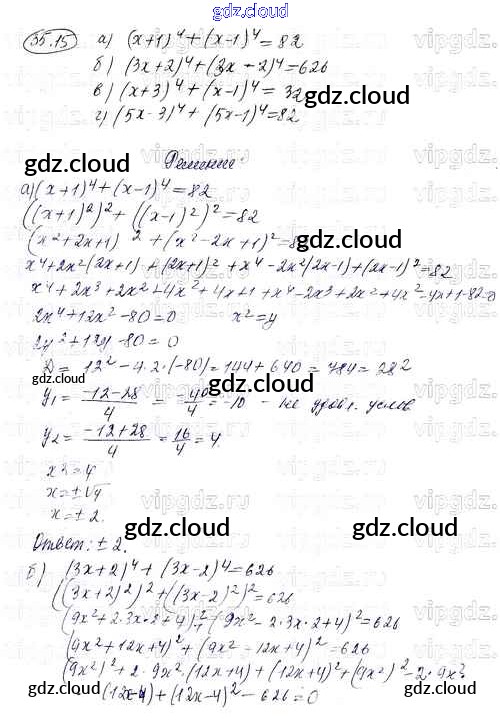 gdz.cloud
35.15 а) (x+1)⁴+(x-1)⁴=82
б) (3x+2)⁴+(3x-2)⁴=626
в) (x+3)⁴+(x-1)⁴= 32
г) (5x-3)⁴+(5x-1)⁴=82
Решение
а) (x+1)⁴+(x-1)⁴=82
((x+1)²)²+((x-1)²)²=82
(x²+2x+1)²+(x²-2x+1)²=8
x⁴+2x²(2x+1)+(2x+1)²+x⁴-2x²(2x-1)+(2x-1)²=82
x⁴+2x³+2x²+4x²+4x+1+x⁴-2x³+2x²+4x²-4x+1-82=0
2x⁴+12x²-80=0 x²=y
2y²+12y-80=0
D=12²-4·2·(-80)=144+640=784=28²
y₁=(-12-28)/4=-40/4=-10 - не удовл. услов
y₂=(-12+28)/4=16/4=4
x²=4
x=±√4
x=±2.
Ответ: ±2.
б) (3x+2)⁴+(3x-2)⁴=626
((3x+2)²)²+((3x-2)²)²=626
(9x²+2·3x·2+4)²+(9x²-2·3x·2+4)²=626
(9x²+12x+4)²+(9x²-12x+4)²=626
(9x²)²+2·9x²·(12x+4)+(12x+4)²+(9x²)²-2·9x²
(12x-4)+(12x-4)²-626=0
gdz.cloud